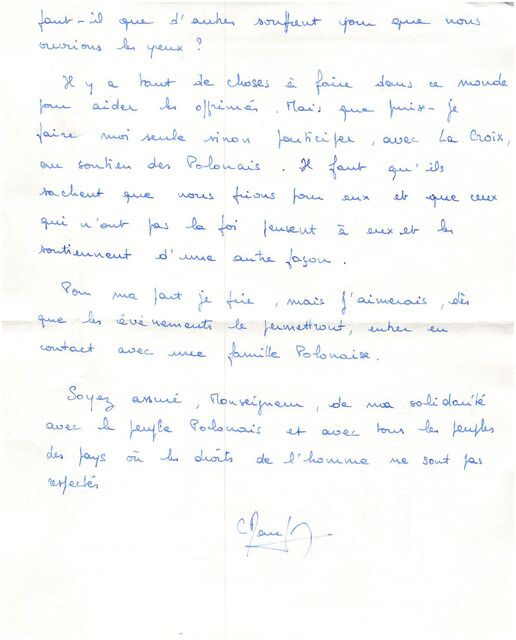 faut-il que d'autres souffrent pour que nous
ouvrions les yeux ?
Il y a tant de choses à faire dans ce monde
pour aider les opprimés. Mais que puis-je
faire moi seule sinon participer, avec La Croix,
au soutien des Polonais. Il faut qu'ils
sachent que nous prions pour eux et que ceux
qui n'ont pas la foi pensent à eux et les
soutiennent d'une autre façon.
Pour ma part je prie, mais j'aimerais, dès
que les évènements le permettront, entrer en
contact avec une famille Polonaise.
Soyez assuré, Monseigneur, de ma solidarité
avec le peuple Polonais et avec tous les peuples
des pays où les droits de l'homme ne sont pas
respectés